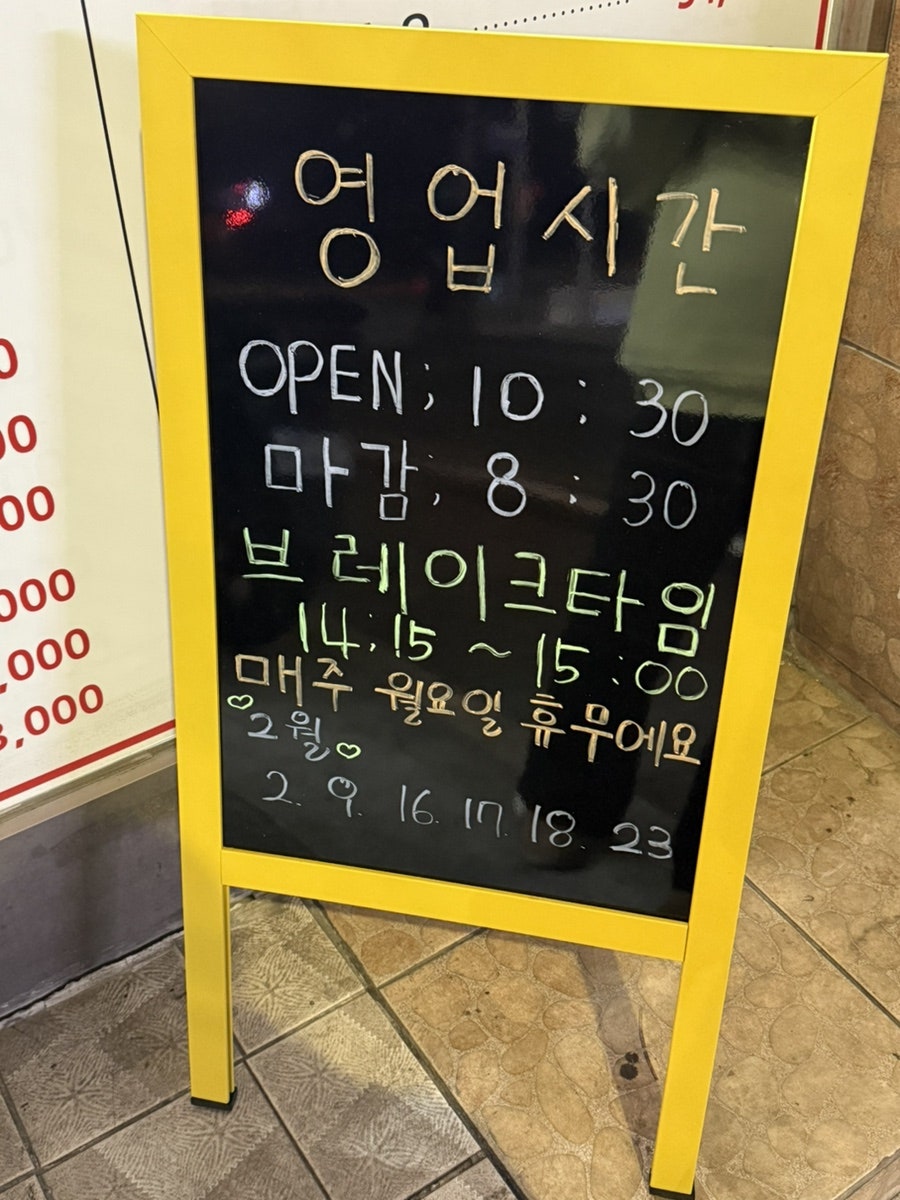 영업시간
OPEN; 10 : 30
마감; 8 : 30
브레이크타임
14:15 ~ 15:00
매주 월요일 휴무에요
♡2월♡
2. 9. 16. 17. 18. 23
0
00
00
000
,000
3,000